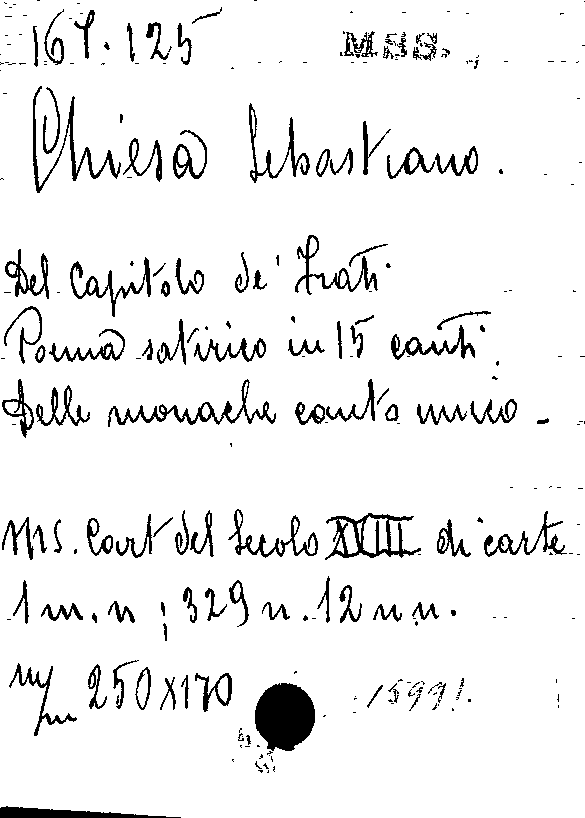 167.125 MSS.
Chiesa Sebastiano.
Del Capitolo de' Frati
Poema satirico in 15 canti.
Delle monache canto unico -
MS. Cart del Secolo XVIII di carte
1 m. n; 329 n. 12 n n.
m/m 250x170 15991.